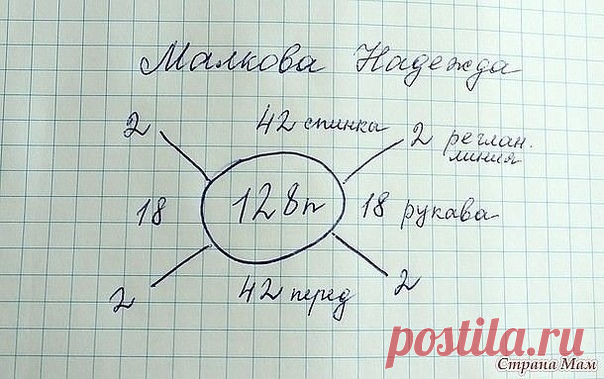 Малкова Надежда
2 42 спинка 2 реглан.
линия
18 128п 18 рукава
2 42 перед 2
postila.ru
Страна Мам